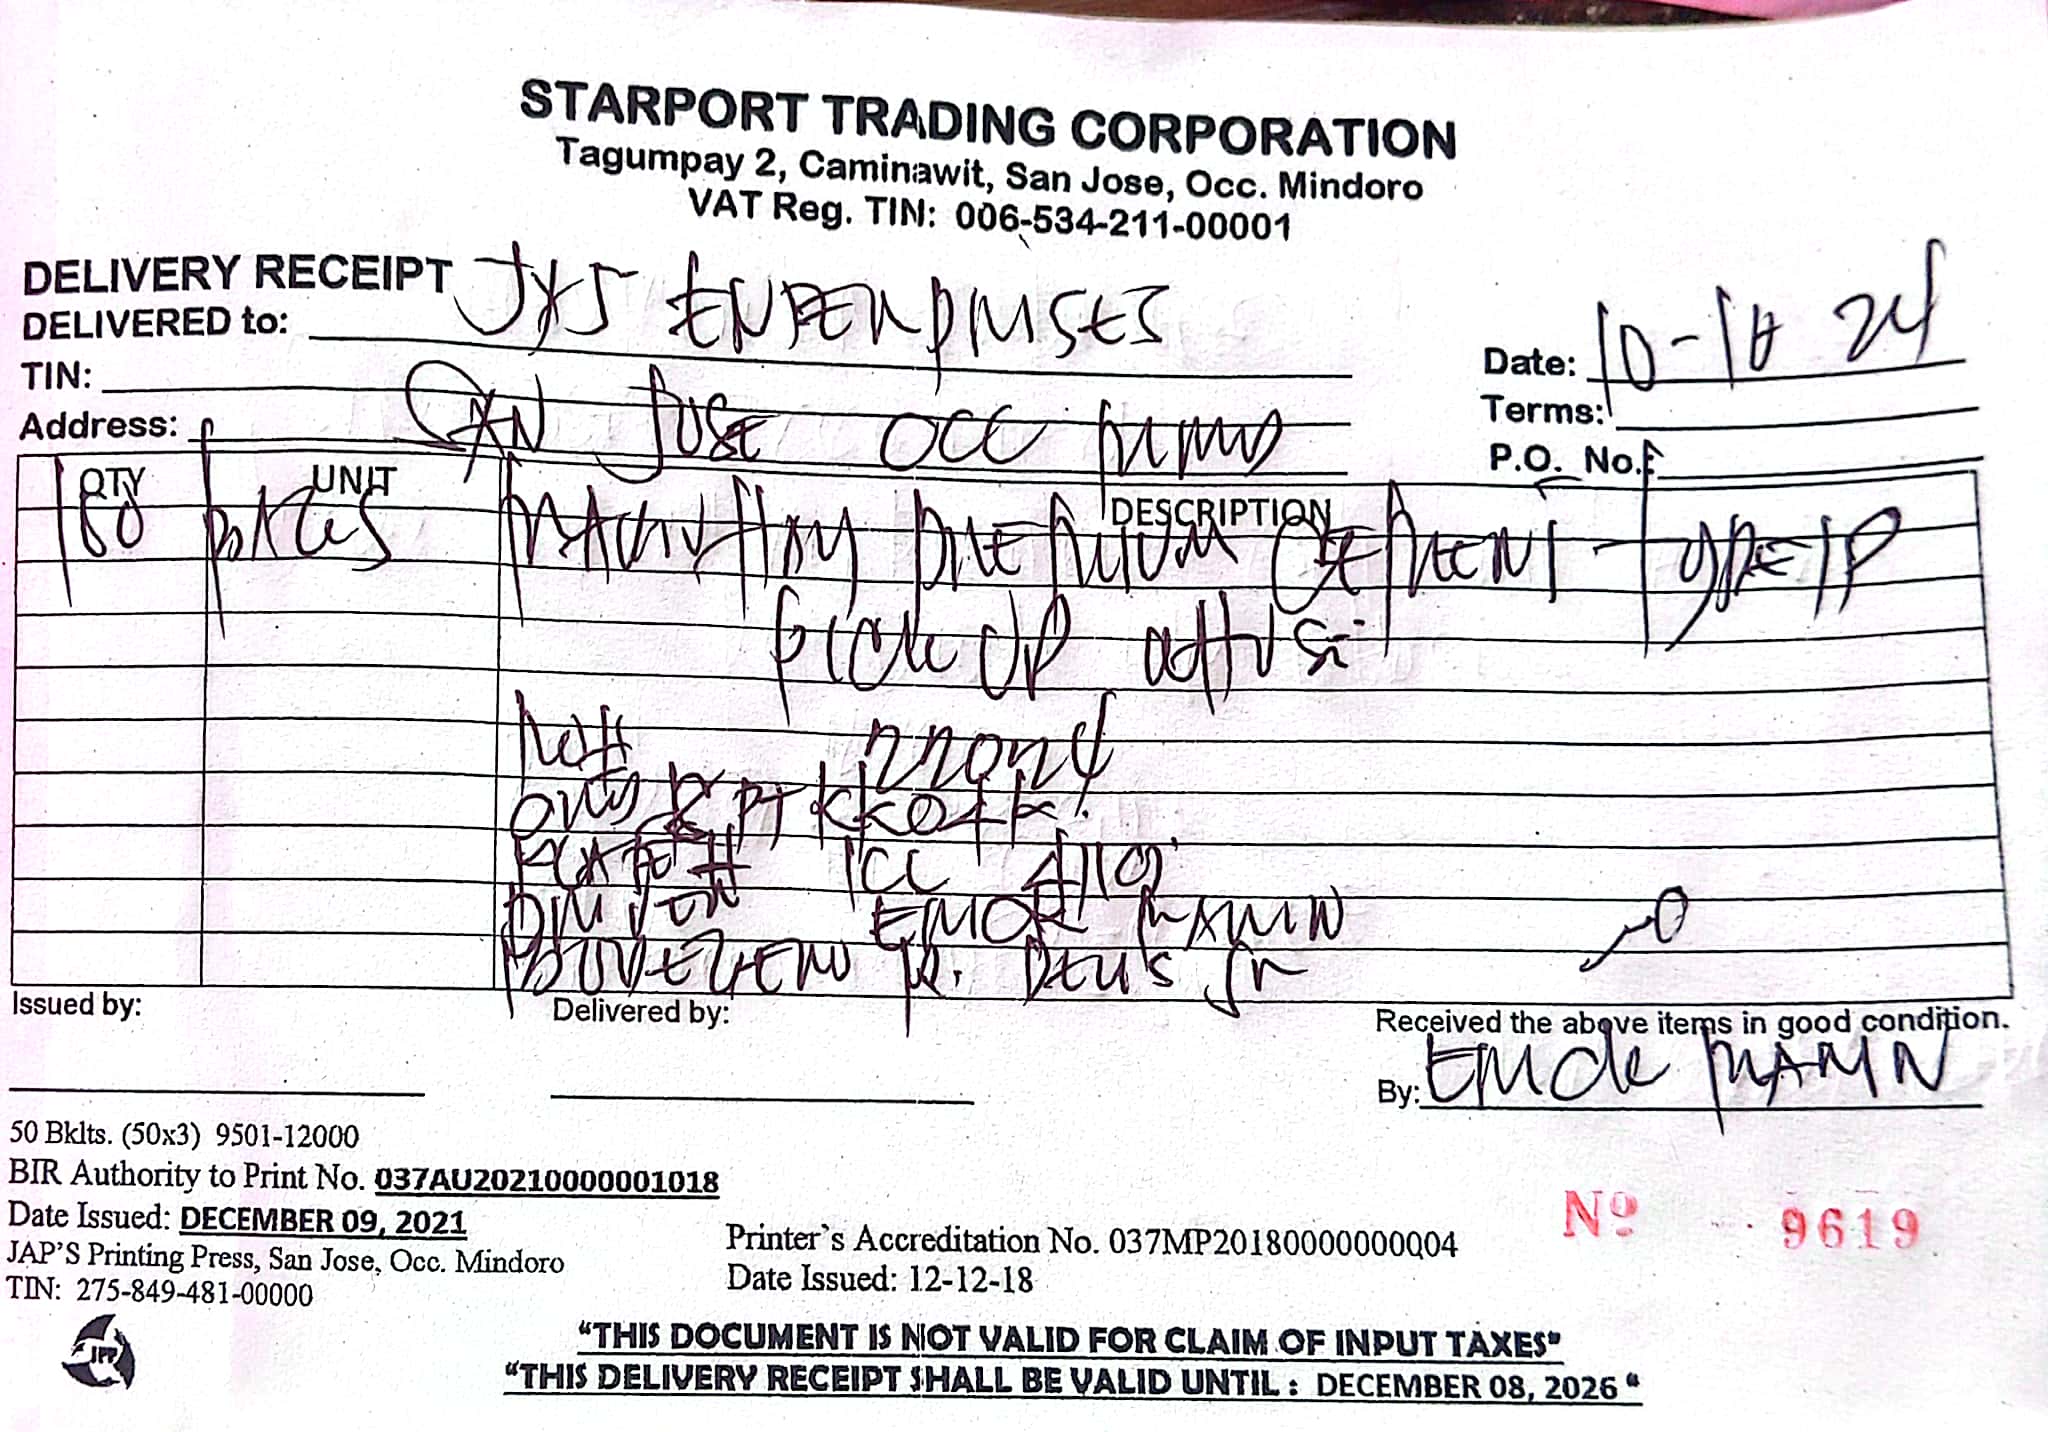 STARPORT TRADING CORPORATION
Tagumpay 2, Caminawit, San Jose, Occ. Mindoro
VAT Reg. TIN: 006-534-211-00001
DELIVERY RECEIPT
DELIVERED to: JXS ENTERPRISES
TIN:
Address: SAN JOSE OCC MINDO
Date: 10-18 24
Terms:
P.O. No.:
QTY UNIT DESCRIPTION
180 PREMIUM CEMENT - TYPE 1P
PICK UP
22024
PLATE #
DRIVER
JR
Issued by:
Delivered by:
Received the above items in good condition.
By:
50 Bklts. (50x3) 9501-12000
BIR Authority to Print No. 037AU20210000001018
Date Issued: DECEMBER 09, 2021
JAP'S Printing Press, San Jose, Occ. Mindoro
TIN: 275-849-481-00000
JPP
Printer's Accreditation No. 037MP20180000000004
Date Issued: 12-12-18
Nº 9619
"THIS DOCUMENT IS NOT VALID FOR CLAIM OF INPUT TAXES"
"THIS DELIVERY RECEIPT SHALL BE VALID UNTIL : DECEMBER 08, 2026"